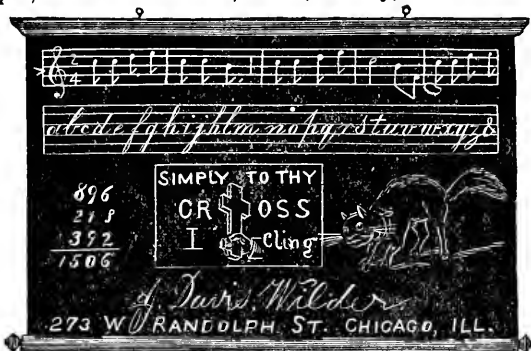 2
4
abcdefghijklmnopqrstuvwxyz&
896
218
392
1506
SIMPLY TO THY
CROSS
I Cling
J. Davis Wilder
273 W RANDOLPH ST. CHICAGO, ILL.